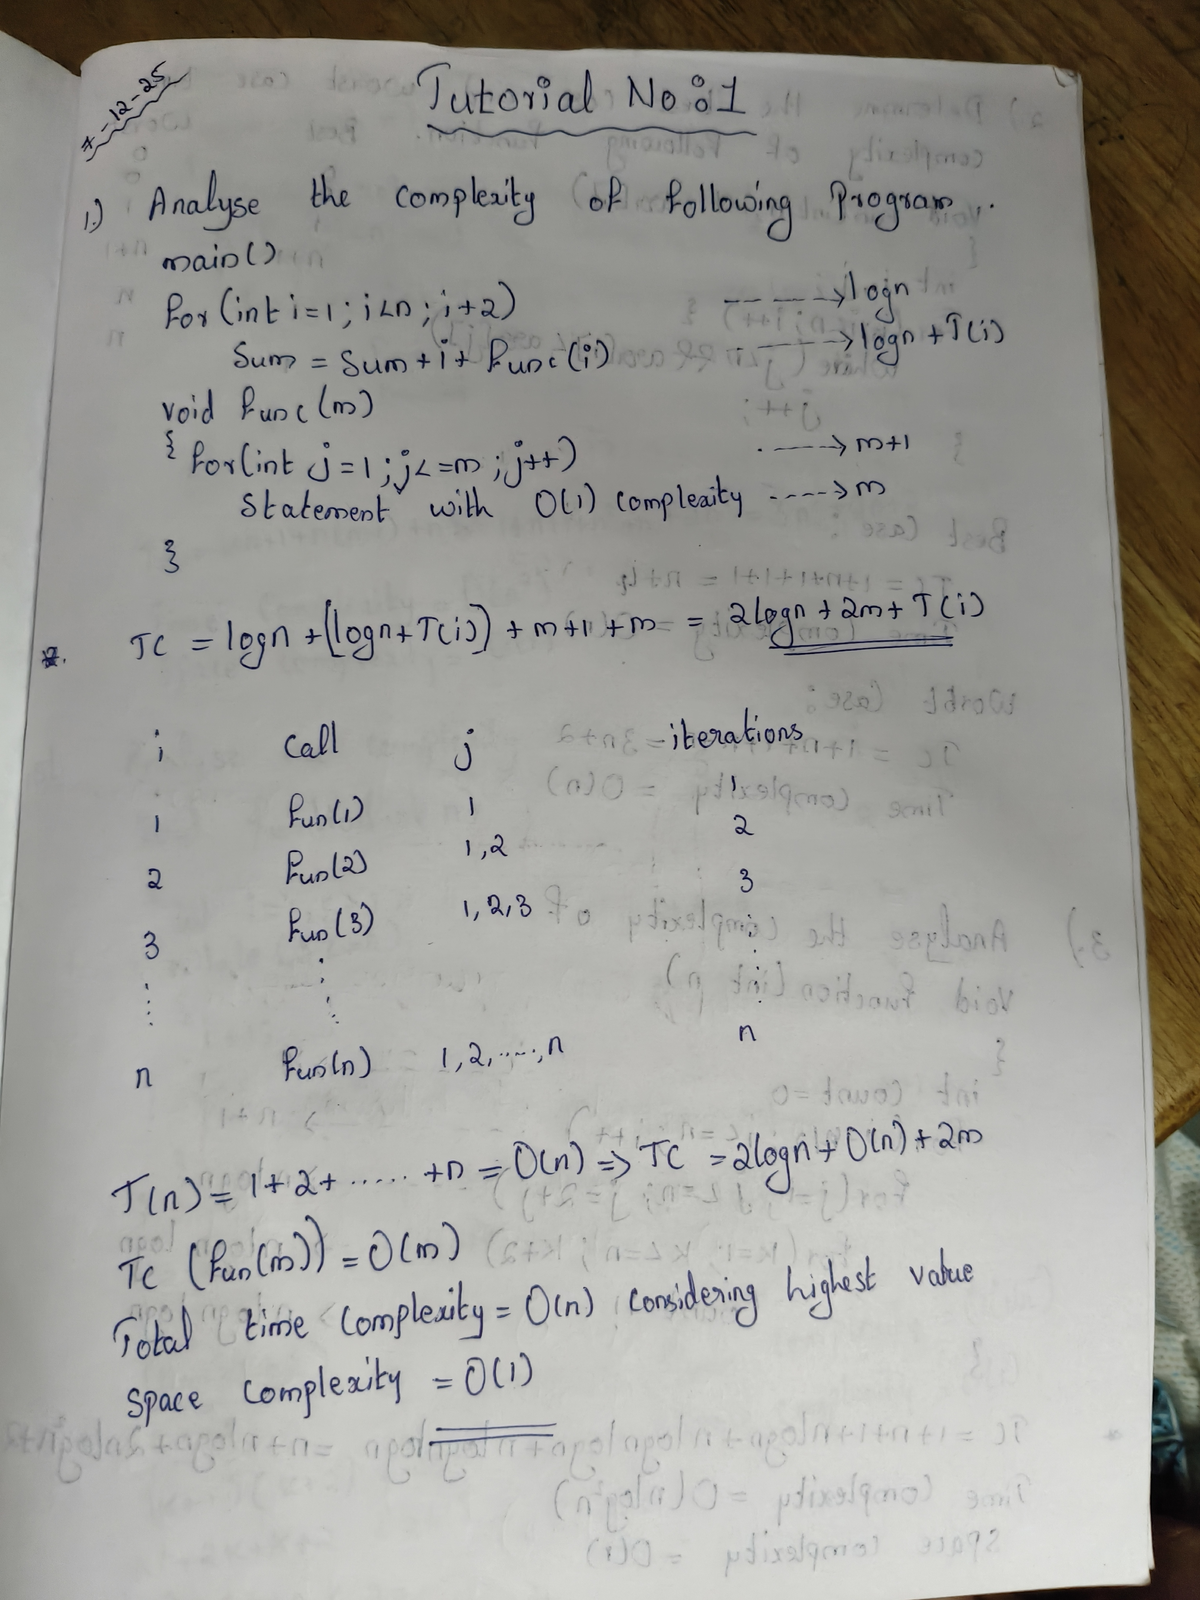 7-12-25
Tutorial No:1
1.) Analyse the complexity of following Program.
main()
for(int i=1; i<n; i+2) ------> logn
Sum = Sum+i+func(i) ------> logn+T(i)
void func(m)
{ for(int j=1; j<=m; j++) ------> m+1
Statement with O(1) complexity ----> m
}
TC = logn+(logn+T(i))+m+1+m = 2logn+2m+T(i)
i call j iterations
1 fun(1) 1 1
2 fun(2) 1,2 2
3 fun(3) 1,2,3 3
n fun(n) 1,2,....,n n
T(n) = 1+2+.....+n = O(n) => TC = 2logn+O(n)+2m
TC (fun(m)) = O(m)
Total time complexity = O(n) considering highest value
Space complexity = O(1)